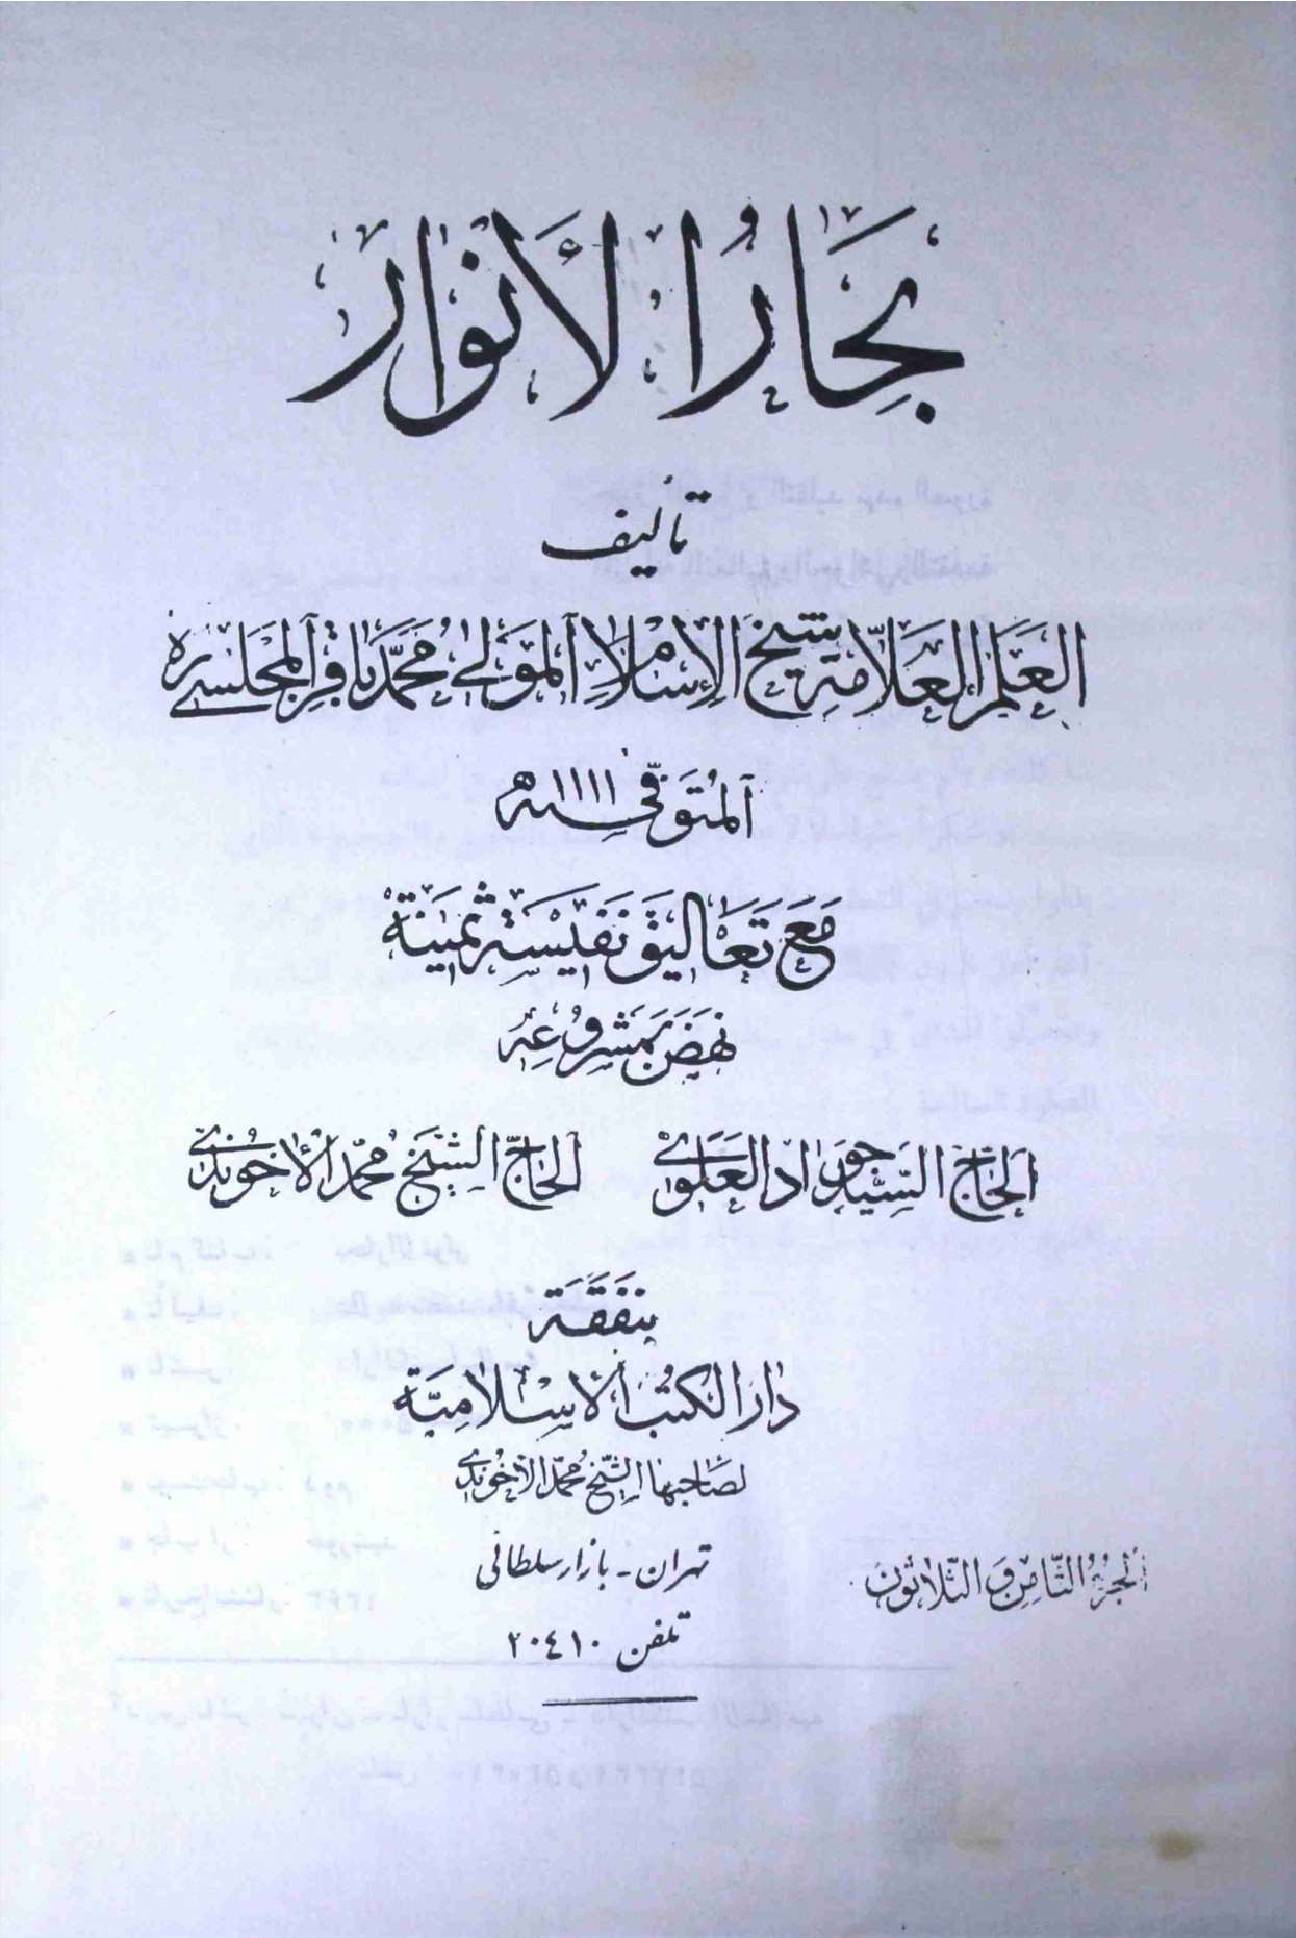 بِحَارُ الْأَنْوَار
تأليف
العَلَمِ العَلَّامَةِ شَيْخِ الإِسْلَامِ المَوْلَى مُحَمَّد بَاقِرِ المَجْلِسِي ره
المُتَوَفّى سنه ١١١١ ه
مَعَ تَعَالِيقَ نَفِيسَةٍ ثَمِينَةٍ
نَهَضَ بِمَشْرُوعِهِ
الحَاجّ السَّيّد جَوَاد العَلَوِي الحَاجّ الشَّيْخ مُحَمَّد الآخُونْدِي
بِنَفَقَةِ
دَارُ الكُتُب الْإِسْلَامِيَّة
لصَاحِبهَا الشَّيْخ مُحَمَّد الآخُونْدِي
تهران - بازار سلطانى
الجُزْءُ الثَّامِن وَ الثَّلَاثُون
تلفن ٢٠٤١٠